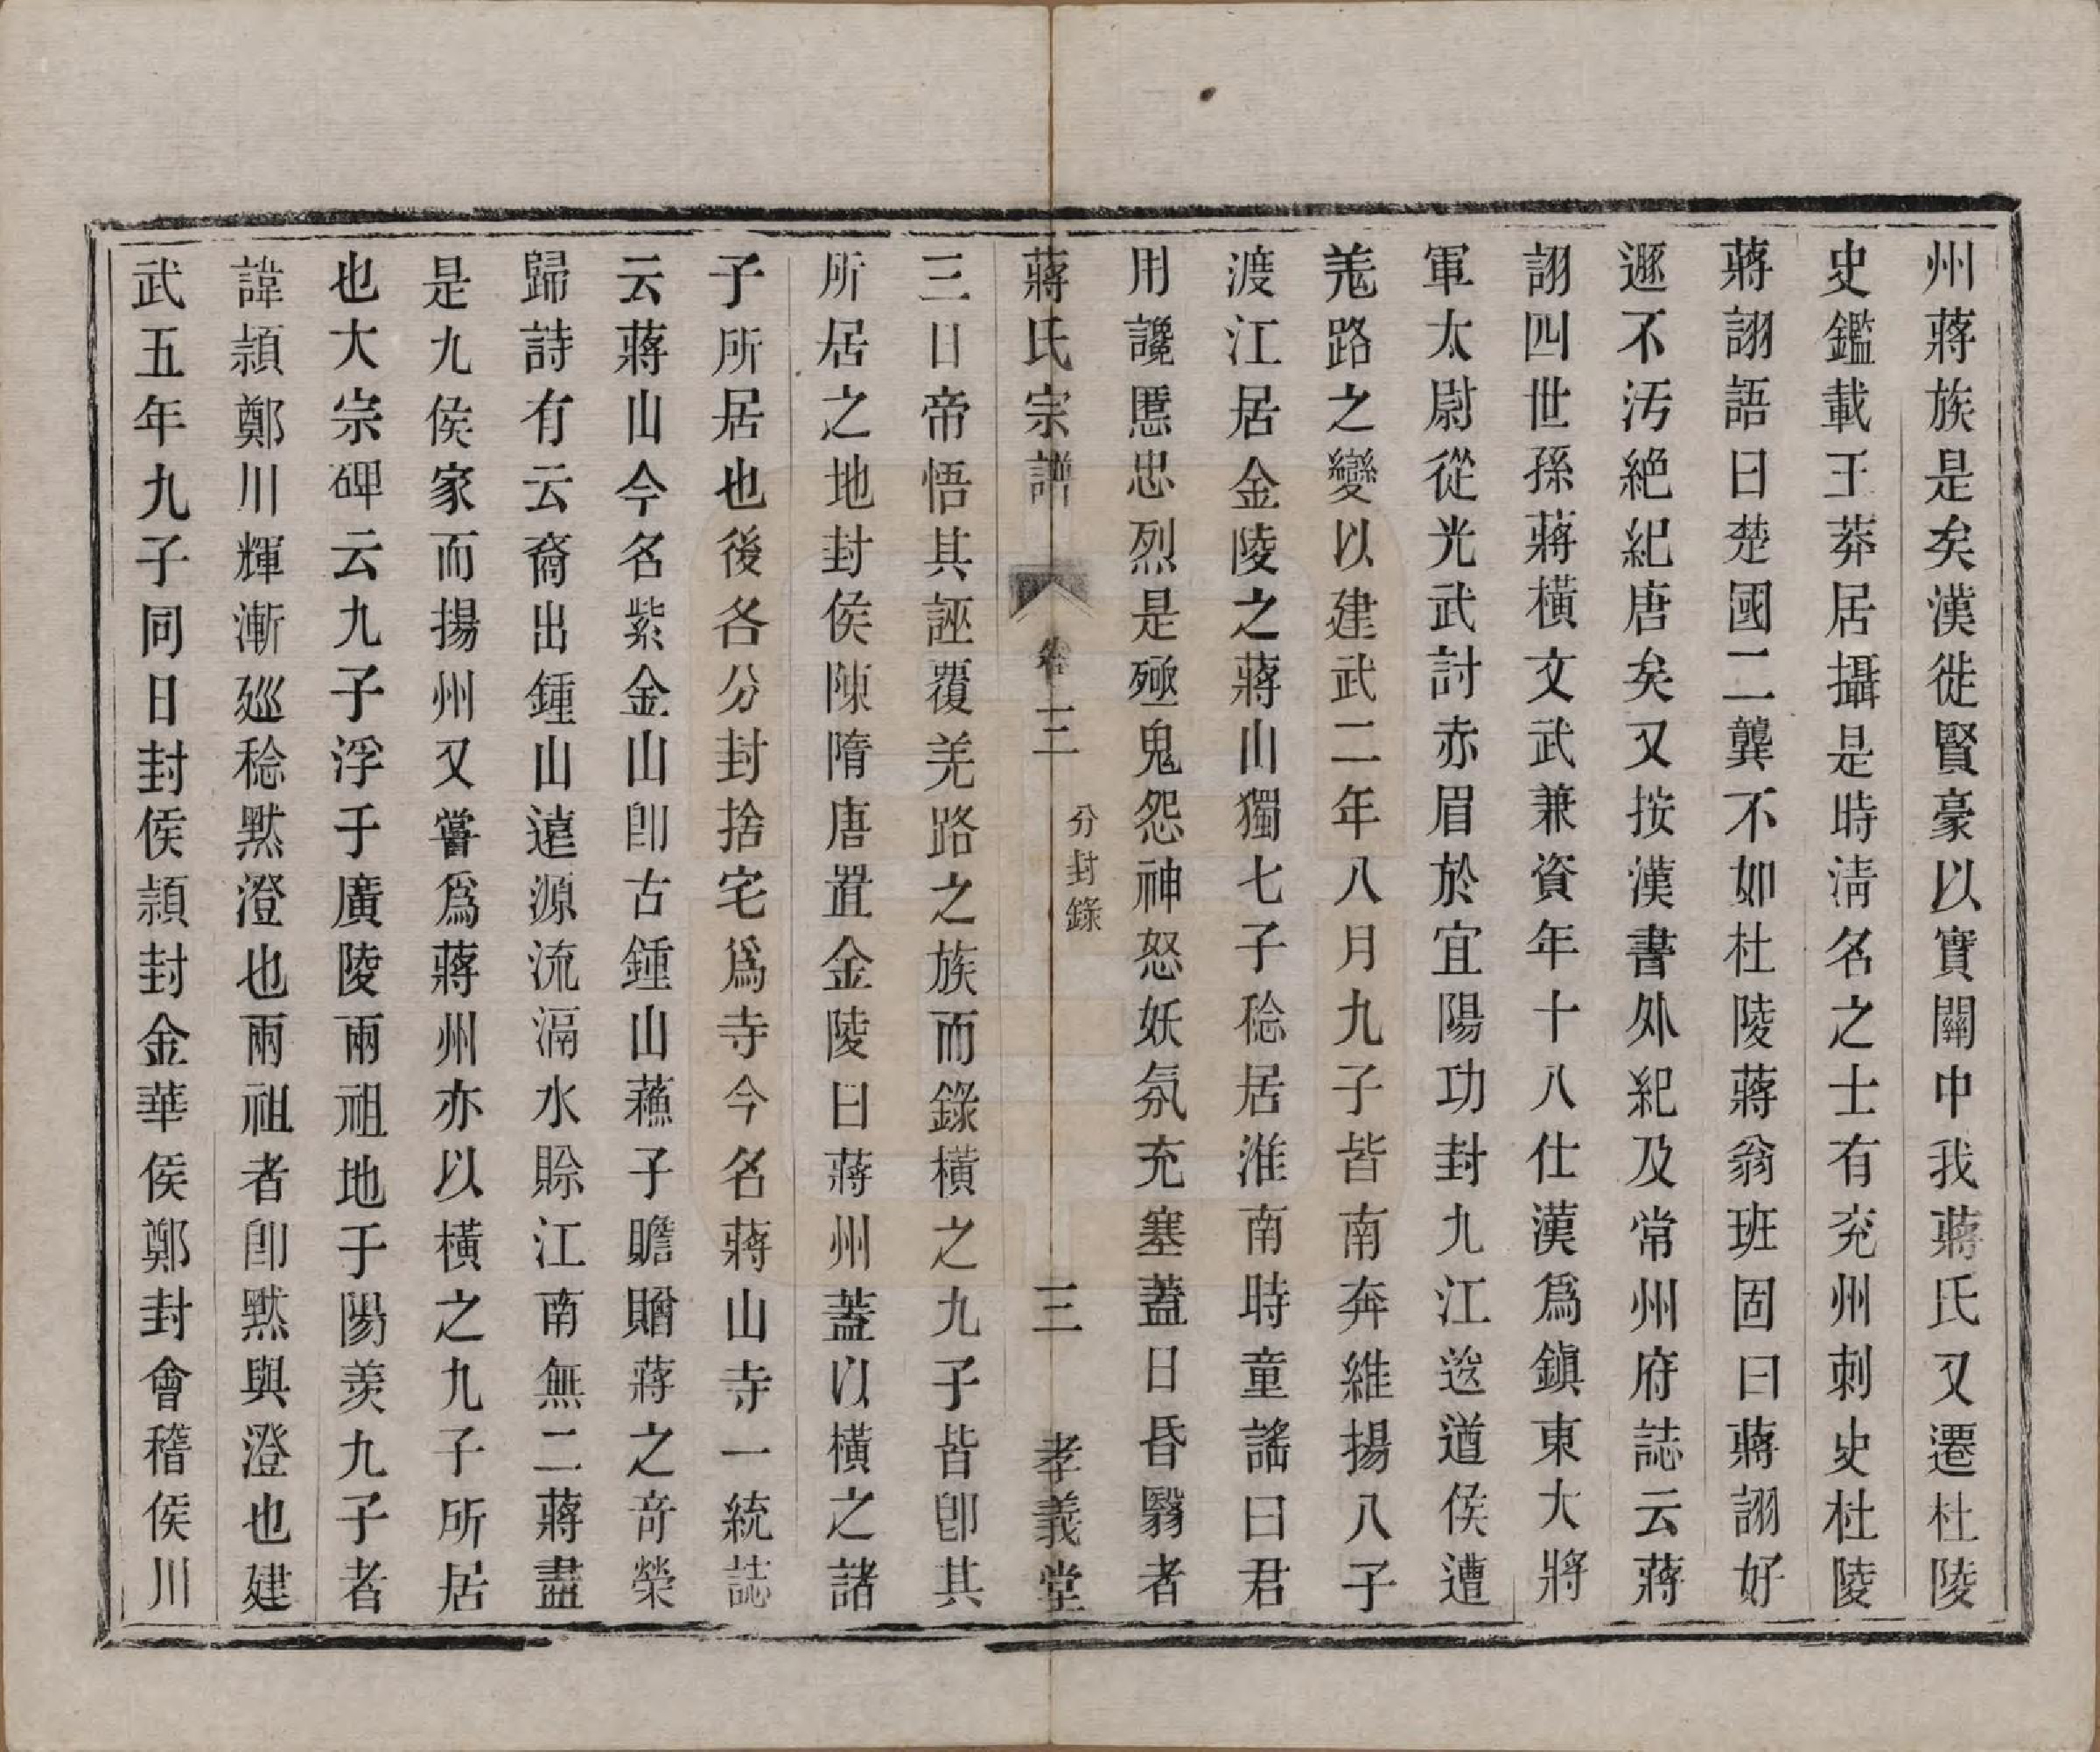 州蔣族是矣漢徙賢豪以實關中我蔣氏又遷杜陵
史鑑載王莽居攝是時淸名之士有兖州刺史杜陵
蔣詡語曰楚國二龔不如杜陵蔣翁班固曰蔣詡好
遯不汚絶紀唐矣又按漢書外紀及常州府誌云蔣
詡四世孫蔣橫文武兼資年十八仕漢爲鎭東大將
軍太尉從光武討赤眉於宜陽功封九江逡遒侯遭
羌路之變以建武二年八月九子皆南奔維揚八子
渡江居金陵之蔣山獨七子稔居淮南時童謠曰君
用讒慝忠烈是殛鬼怨神怒妖氛充塞蓋日昏翳者
蔣氏宗譜 卷三 分封錄 三 孝義堂
三日帝悟其誣覆羌路之族而錄橫之九子皆卽其
所居之地封侯陳隋唐置金陵曰蔣州蓋以橫之諸
子所居也後各分封捨宅爲寺今名蔣山寺一統誌
云蔣山今名紫金山卽古鍾山蘓子瞻贈蔣之奇榮
歸詩有云裔出鍾山遠源流滆水賒江南無二蔣盡
是九侯家而揚州又嘗爲蔣州亦以橫之九子所居
也大宗碑云九子浮于廣陵兩祖地于陽羨九子者
諱頴鄭川輝漸廵稔默澄也兩祖者卽默與澄也建
武五年九子同日封侯頴封金華侯鄭封會稽侯川